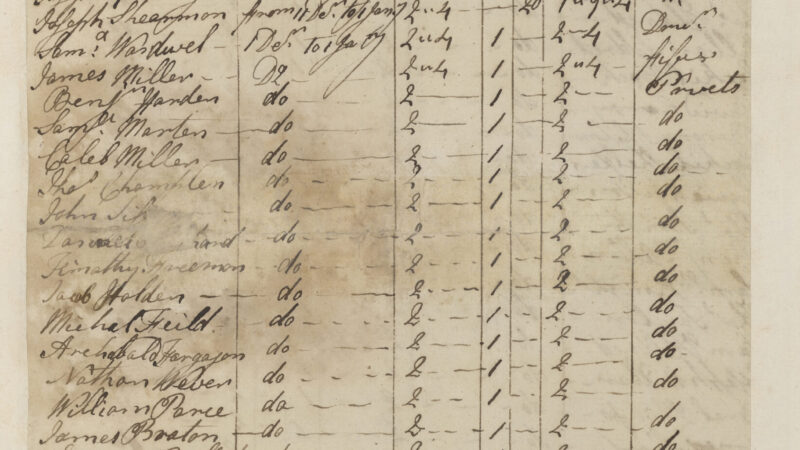 Joseph Shearmon from 11 Des. to 1 Jany 2"4 — 20
Sam.a Wardwel - 1 Des. to 1 Jany 2"4 1 2"4 Drums
James Miller - Do 2"4 1 2"4 fifer
Benj.n Harden do 2 1 2 Privets
Sam.ll Marten do 2 1 2 do
Caleb Miller do 2 1 2 do
Tho.s Chamblen do 2 1 2 do
John do 2 1 2 do
do 2 1 2 do
Timothy Freeman do 2 1 2 do
Jacob Holden do 2 1 2 do
Michal Feild do 2 1 2 do
Archebald Fargason do 2 1 2 do
Nathan Weber do 2 1 2 do
William Parce do 2 1 2 do
James Braton do 2 1 2 do